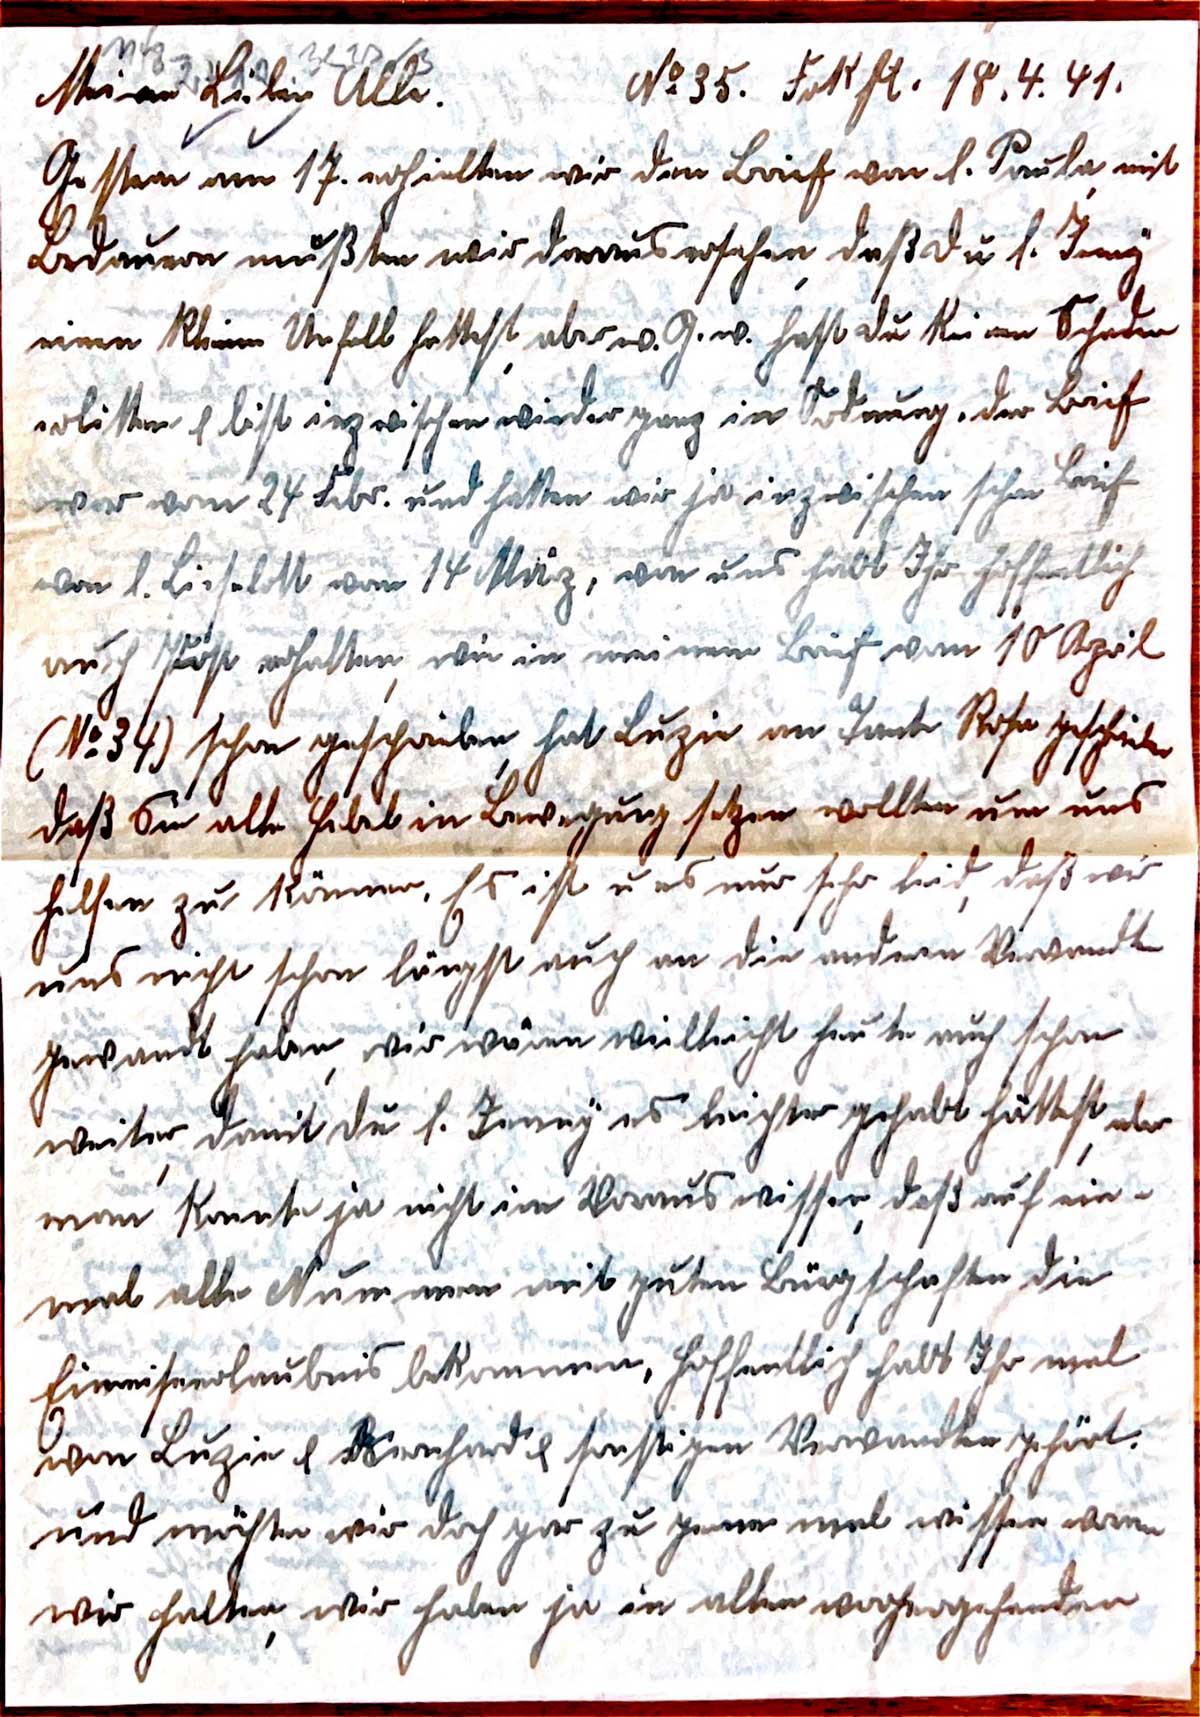 Meine Lieben Alle. No 35. Frkft. 18.4.41.
Gestern am 17. erhielten wir den Brief von l. Paula, mit
Bedauern mußten wir daraus ersehen, daß Du l. Jenny
einen kleinen Unfall hattest, aber w. G. w. hast Du keinen Schaden
erlitten & bist inzwischen wieder ganz in Ordnung. Der Brief
war vom 24 Febr. und hatten wir ja inzwischen schon Brief
von l. Lieselott vom 14 März, von uns habt Ihr hoffentlich
auch Post erhalten, wie in meinem Brief vom 10 April
(No 34) schon geschrieben, hat Luzie an Tante Rosa geschrieben
daß Sie alle Hebel in Bewegung setzen wollten um uns
helfen zu können. Es ist uns nur sehr leid, daß wir
uns nicht schon längst auch an die andern Verwandte
gewandt haben, wir wären vielleicht heute auch schon
weiter, damit Du l. Jenny es leichter gehabt hättest, aber
man konnte ja nicht im Voraus wissen, daß auf ein-
mal alle Nummern mit guten Bürgschaften die
Einreiseerlaubnis bekommen, hoffentlich habt Ihr mal
von Luzie & Bernhard & sonstigen Verwandten gehört.
und möchten wir doch gar zu gerne mal wissen woran
wir halten, wir haben ja in allen vorhergehenden